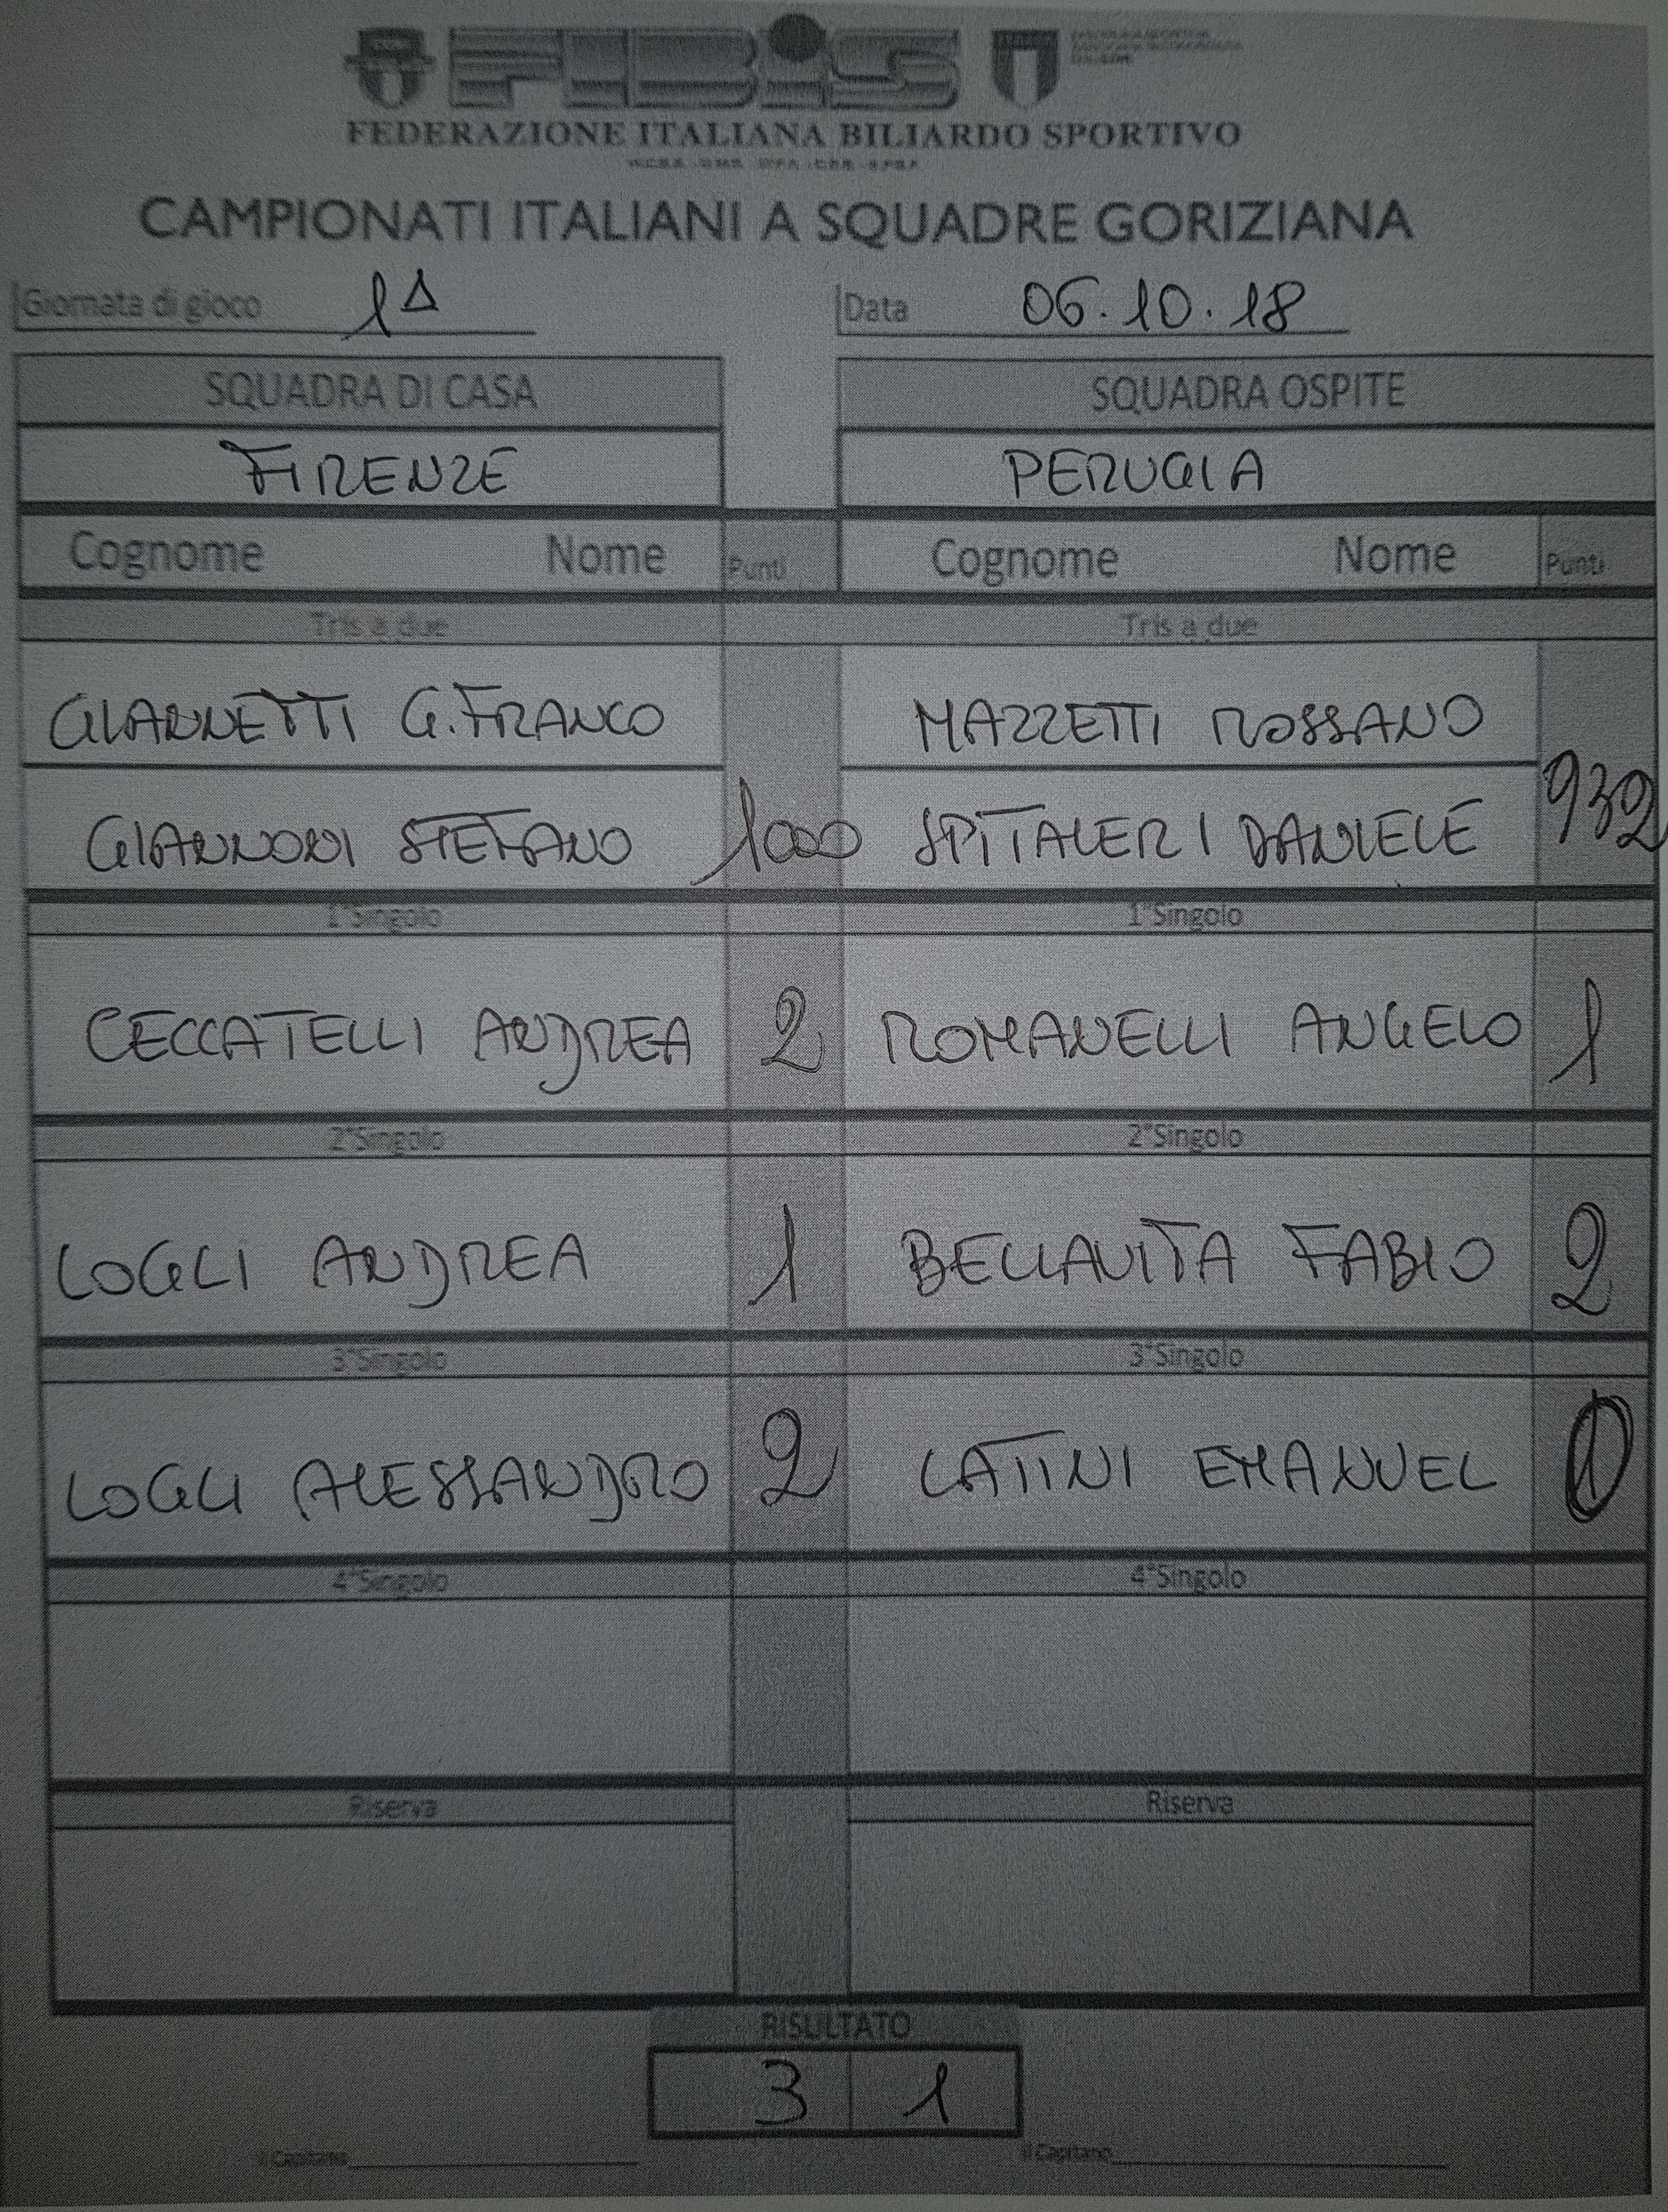 FIBiS
FEDERAZIONE ITALIANA BILIARDO SPORTIVO
CAMPIONATI ITALIANI A SQUADRE GORIZIANA
Giornata di gioco 1A Data 06.10.18
SQUADRA DI CASA SQUADRA OSPITE
FIRENZE PERUGIA
Cognome Nome Punti Cognome Nome Punti
Tris a due Tris a due
GIANNETTI G.FRANCO MAZZETTI ROSSANO
GIANNONI STEFANO 1000 SPITALERI DANIELE 932
1°Singolo 1°Singolo
CECCATELLI ANDREA 2 ROMANELLI ANGELO 1
2°Singolo 2°Singolo
LOGLI ANDREA 1 BELLAVITA FABIO 2
3°Singolo 3°Singolo
LOGLI ALESSANDRO 2 LATINI EMANUEL 0
4°Singolo 4°Singolo
Riserva Riserva
RISULTATO
3 1
Il Capitano Il Capitano